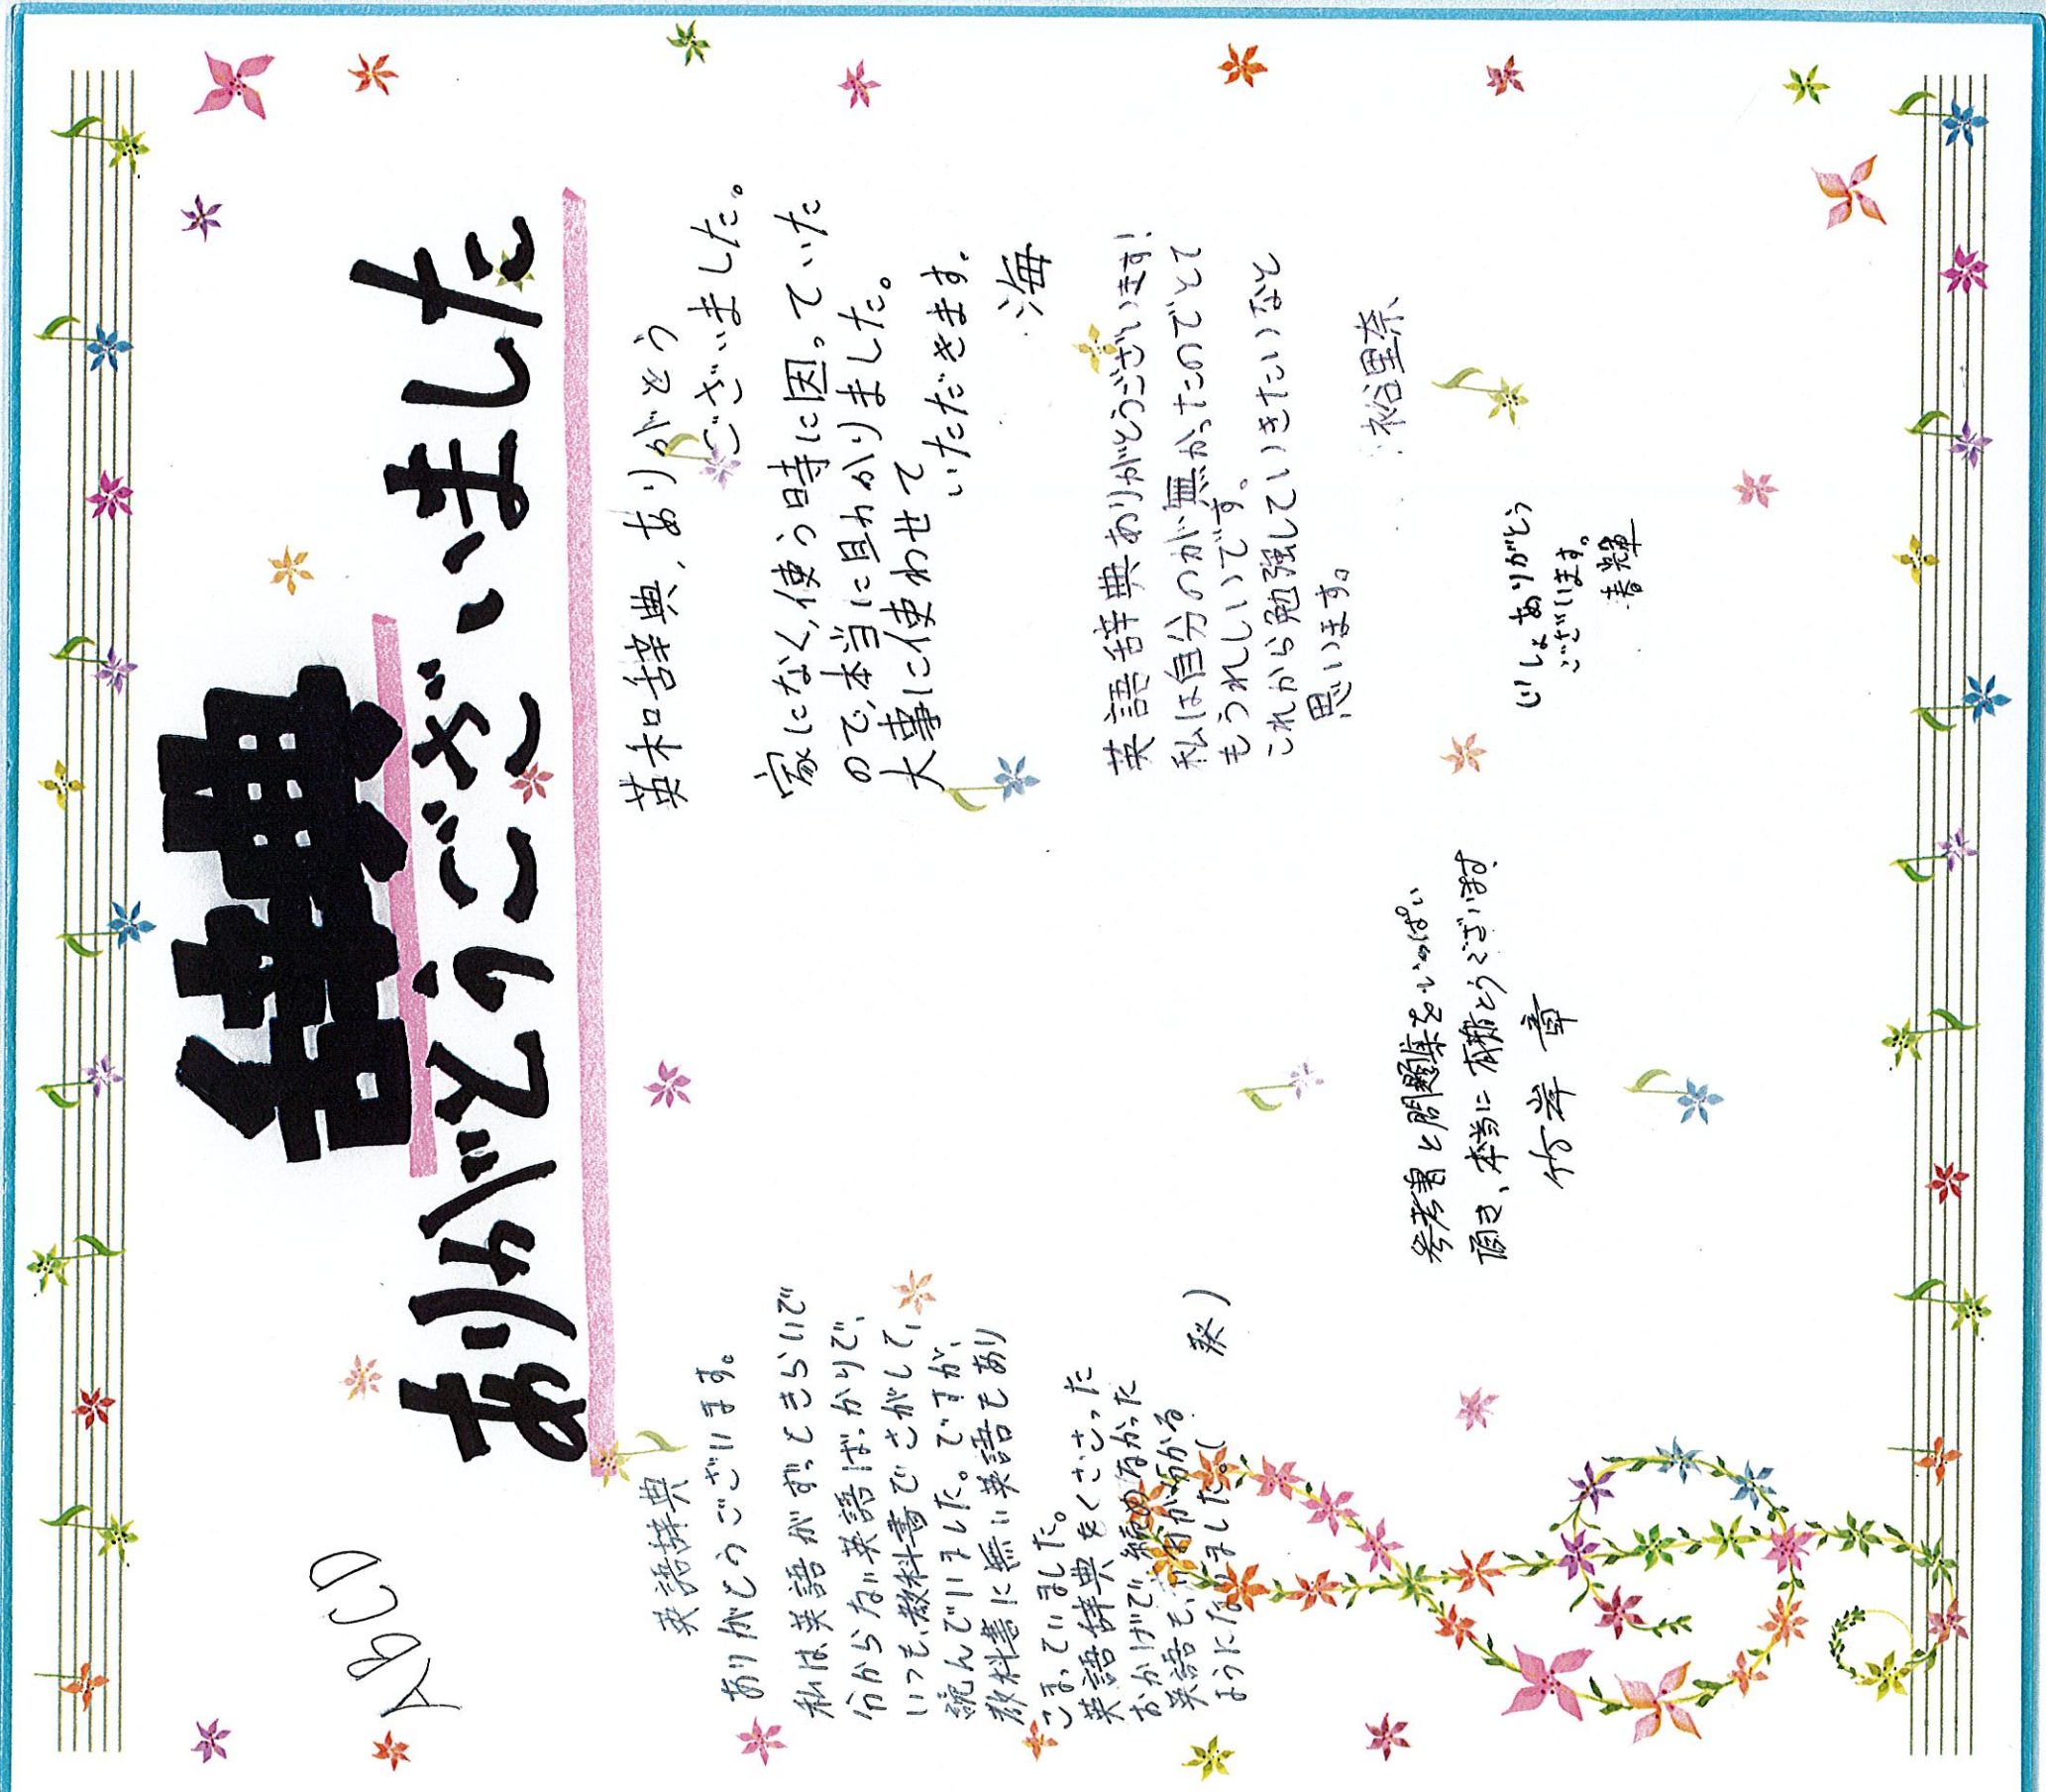 ABCD
辞典
ありがとうございました
英語辞典
ありがとうございます。
私は英語がずっときらいで
分からない英語ばっかりで、
いつも、教科書でさがして、
読んでいました。ですが、
教科書に無い英語もあり
こまっていました。
英語辞典をくださった
おかげで、読めなかった
英語も、分かる
ようになりました。(葵)
英和辞典、ありがとう
ございました。
家になく、使う時に困っていた
ので、本当に助かりました。
大事に使わせて
いただきます。
海
英語辞典ありがとうございます!
私は自分のが無かったのでとて
もうれしいです。
これから勉強していきたいなと
思います。
祐里奈
参考書と問題集をいっぱい
頂き、本当に有難うございます
竹岸 章
じしょありがとう
ございます。
春輝